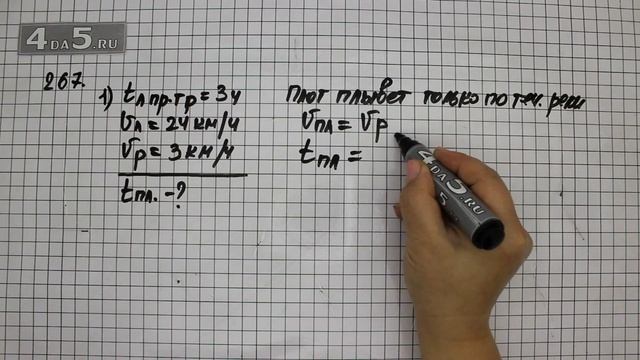 4DA5.RU
267.
1) tл пр.тр = 3ч
Vл = 24 км/ч
Vр = 3 км/ч
tпл. - ?
Плот плывёт только по теч. реки
Vпл = Vр
tпл =
4DA5.RU
5